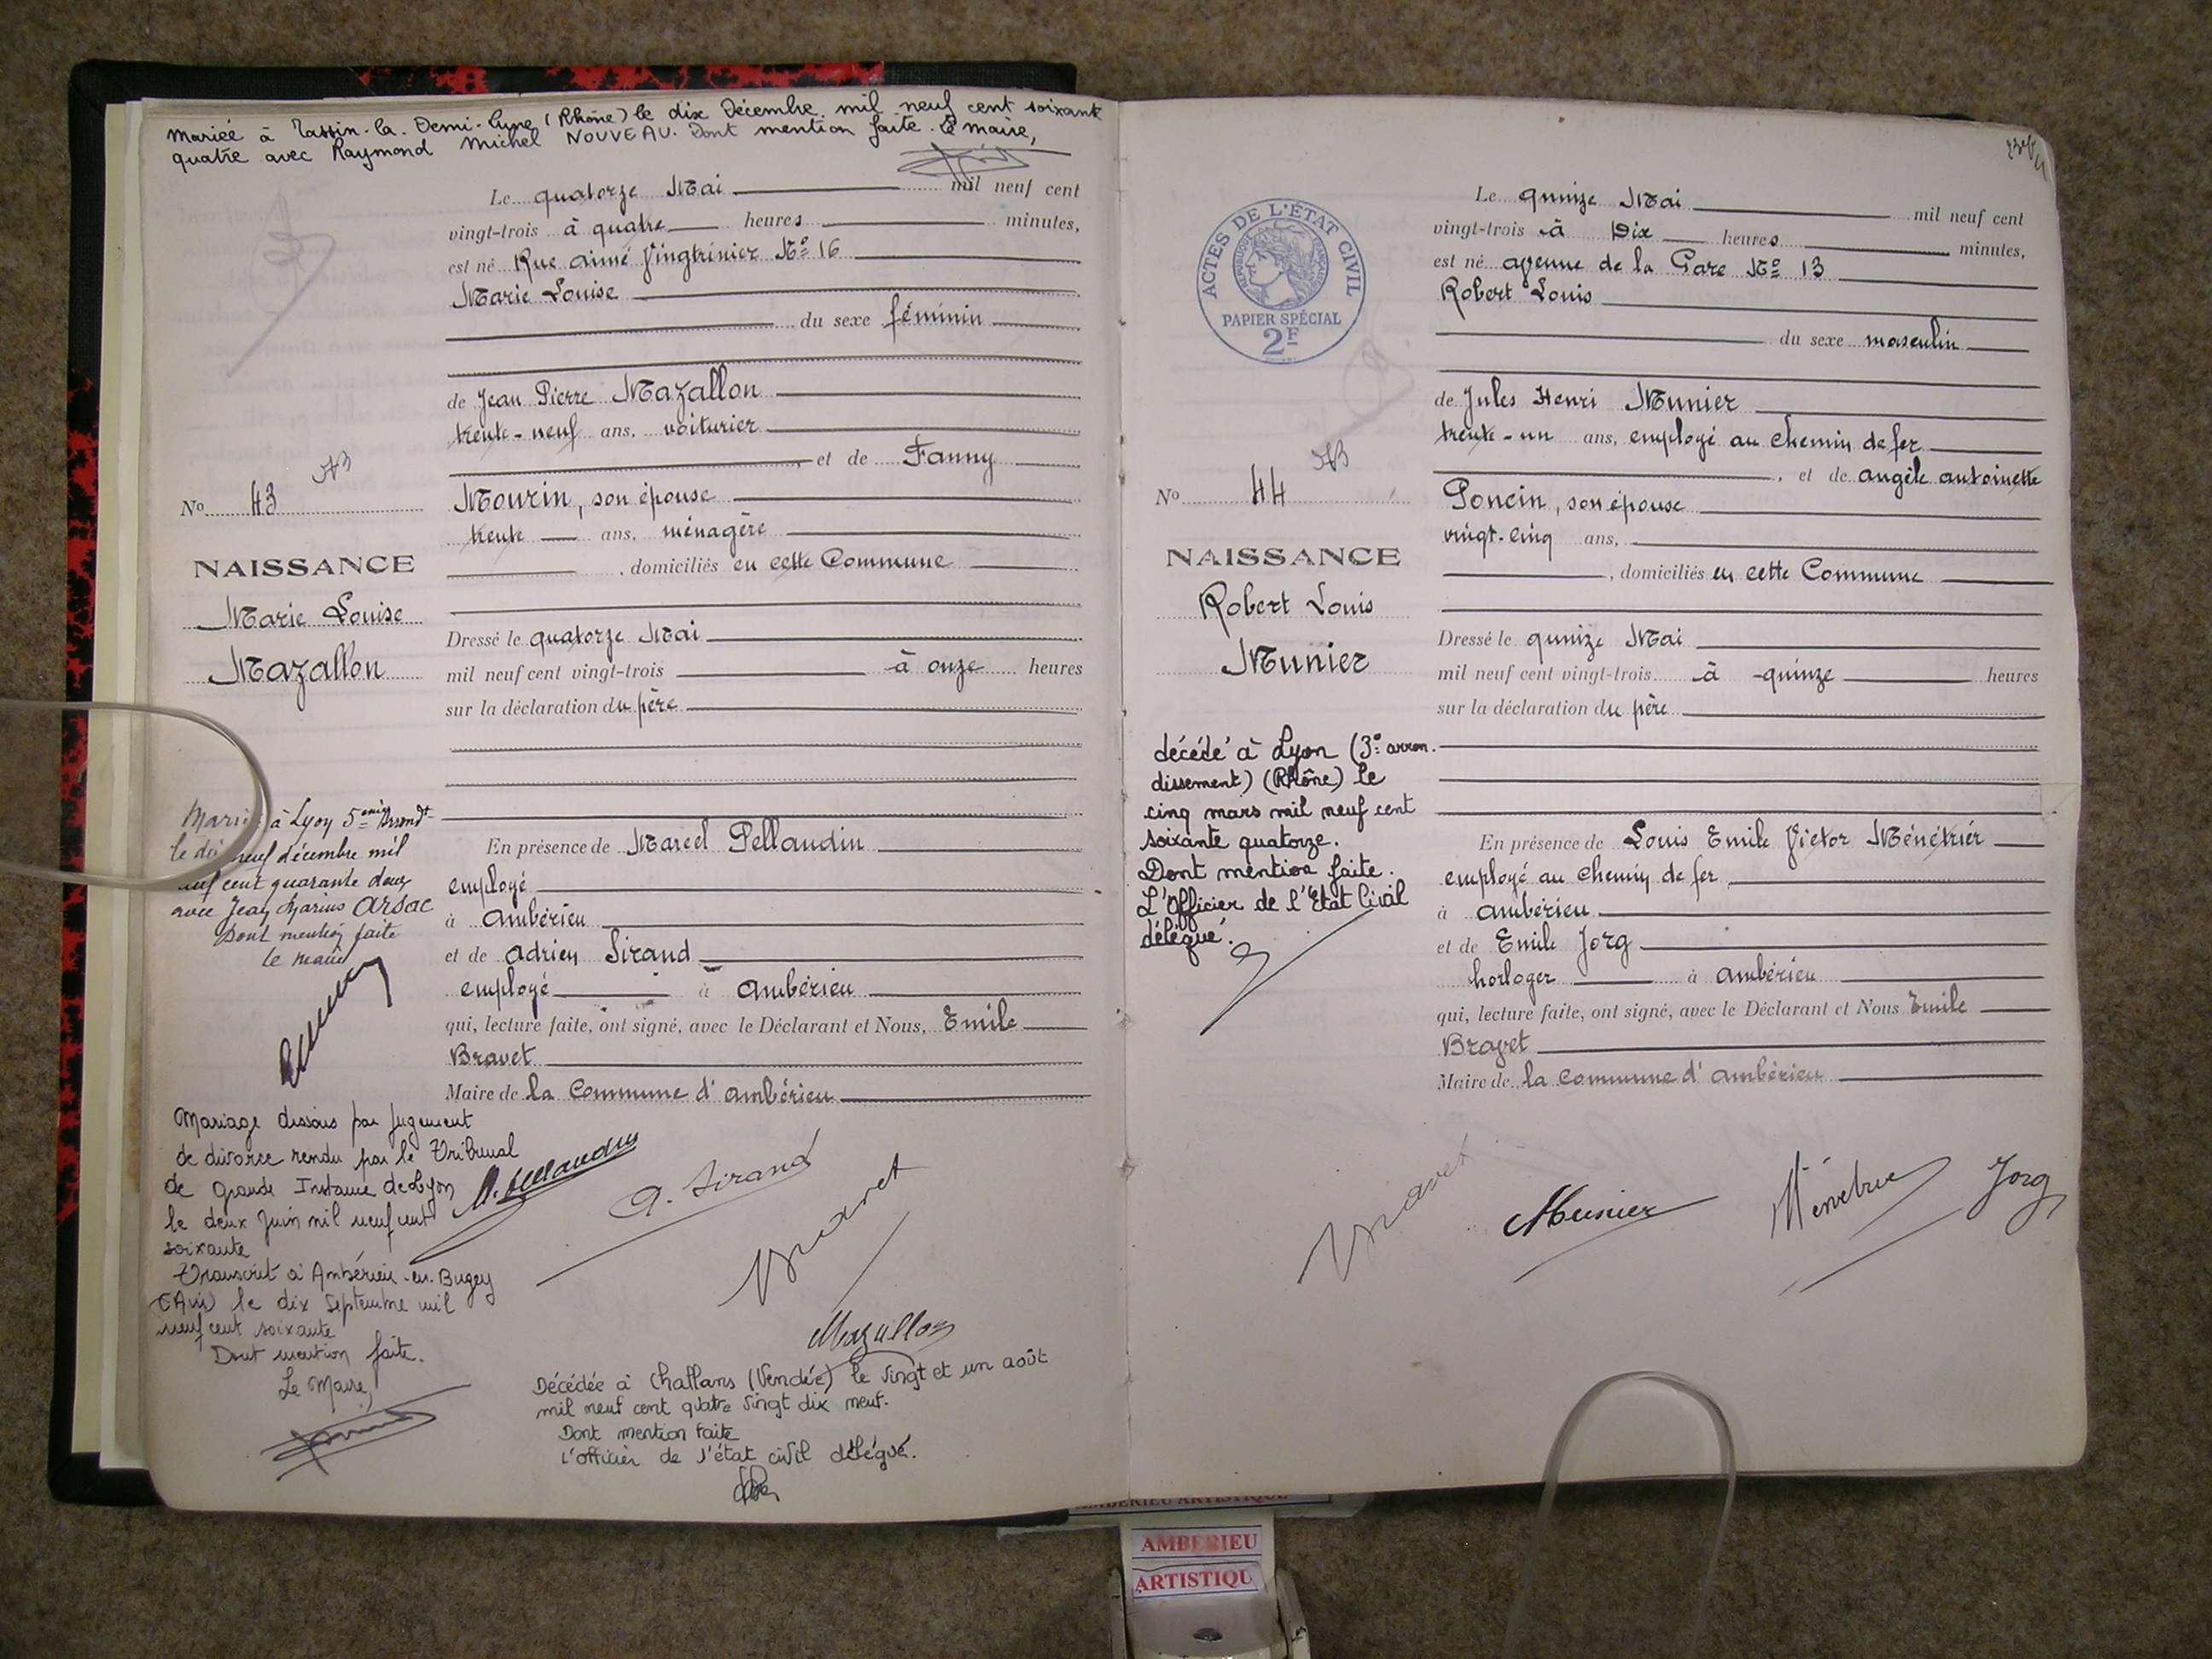 Mariée à Tassin-la-Demi-Lune (Rhône) le dix Décembre mil neuf cent soixante
quatre avec Raymond Michel NOUVEAU. Dont mention faite. Le maire,
Le quatorze Mai mil neuf cent
vingt-trois à quatre heures minutes,
est né Rue Aimé Vingtrinier No 16
Marie Louise
du sexe féminin
de Jean Pierre Mazallon
trente-neuf ans, voiturier
et de Fanny
Mourin, son épouse
trente ans, ménagère
, domiciliés en cette Commune
Dressé le quatorze Mai
mil neuf cent vingt-trois à onze heures
sur la déclaration du père
En présence de Marcel Pellaudin
employé
à Ambérieu
et de Adrien Sirand
employé à Ambérieu
qui, lecture faite, ont signé, avec le Déclarant et Nous, Emile
Bravet
Maire de la Commune d'Ambérieu
No 43
NAISSANCE
Marie Louise
Mazallon
Marié à Lyon 5eme Arrondt
le dix neuf décembre mil
neuf cent quarante deux
avec Jean Marius Arsac
Dont mention faite
le maire
Mariage dissous par jugement
de divorce rendu par le Tribunal
de Grande Instance de Lyon
le deux Juin mil neuf cent
soixante
Transcrit à Ambérieu-en-Bugey
(Ain) le dix Septembre mil
neuf cent soixante
Dont mention faite.
Le Maire,
A. Sirand
Bravet
Mazallon
Décédée à Challans (Vendée) le Vingt et un août
mil neuf cent quatre Vingt dix neuf.
Dont mention faite
L'officier de l'état civil délégué.
ACTES DE L'ÉTAT CIVIL
RÉPUBLIQUE FRANÇAISE
PAPIER SPÉCIAL
2F
Le quinze Mai mil neuf cent
vingt-trois à Dix heures minutes,
est né avenue de la Gare No 13
Robert Louis
du sexe masculin
de Jules Henri Munier
trente-un ans, employé au chemin de fer
, et de Angèle Antoinette
Poncin, son épouse
vingt-cinq ans,
, domiciliés en cette Commune
Dressé le quinze Mai
mil neuf cent vingt-trois à quinze heures
sur la déclaration du père
En présence de Louis Emile Victor Ménétrier
employé au chemin de fer
à Ambérieu
et de Emile Jorg
horloger à Ambérieu
qui, lecture faite, ont signé, avec le Déclarant et Nous Emile
Bravet
Maire de la Commune d'Ambérieu
No 44
NAISSANCE
Robert Louis
Munier
décédé à Lyon (3e arron.
dissement) (Rhône) le
cinq mars mil neuf cent
soixante quatorze.
Dont mention faite.
L'Officier de l'Etat Civil
délégué.
Bravet
Munier
Jorg
AMBERIEU ARTISTIQUE
AMBERIEU
ARTISTIQU